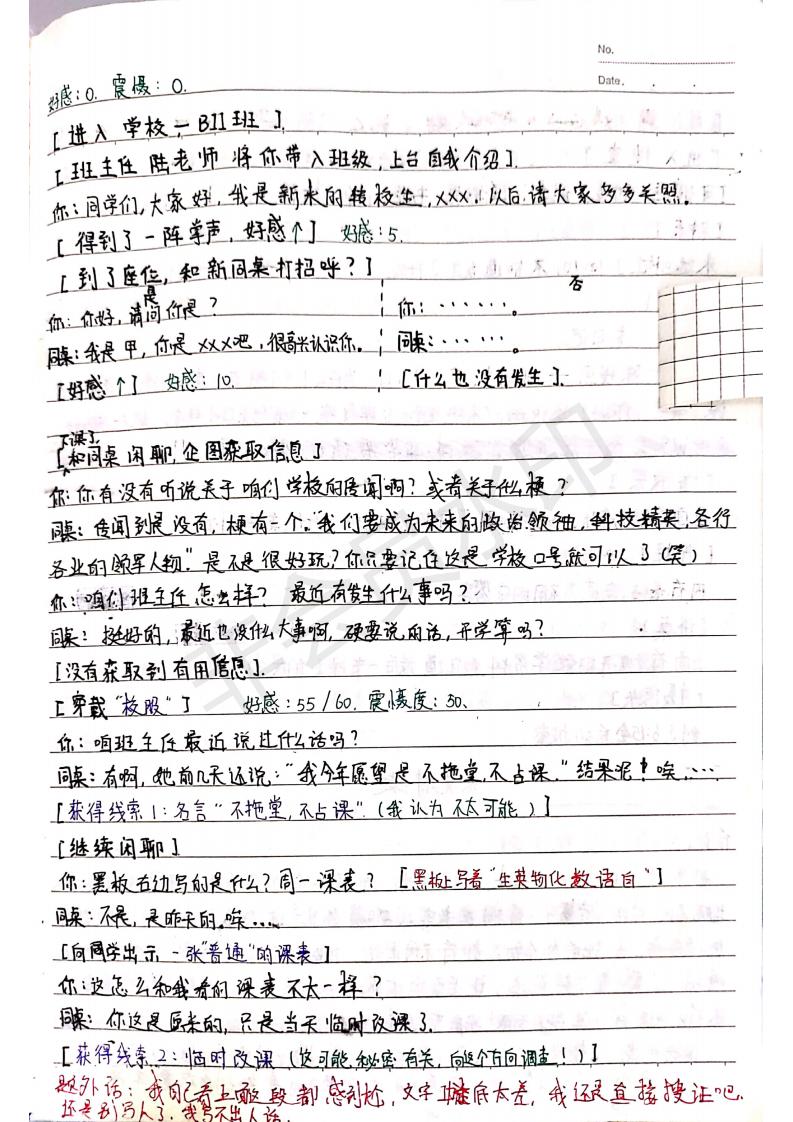 No.
Date. . .
好感:0. 震慑:0.
[进入学校—B11班].
[班主任 陆老师 将你带入班级,上台自我介绍].
你:同学们,大家好,我是新来的转校生,xxx.以后请大家多多关照。
[得到了一阵掌声,好感↑] 好感:5.
[到了座位,和新同桌打招呼?]
是 否
你:你好,请问你是?
你:……。
同桌:我是甲,你是XXX吧,很高兴认识你。
同桌:……。
[好感↑] 好感:10.
[什么也没有发生].
下课了
[和同桌闲聊,企图获取信息]
你:你有没有听说关于咱们学校的传闻啊?或者关于什么梗?
同桌:传闻到是没有,梗有一个。"我们要成为未来的政治领袖,科技精英,各行
各业的领军人物."是不是很好玩?你只要记住这是学校口号就可以了(笑)
你:咱们班主任怎么样? 最近有发生什么事吗?
同桌:挺好的,最近也没什么大事啊,硬要说的话,开学算吗?
[没有获取到有用信息].
[穿戴"校服"] 好感:55/60.震慑度:50.
你:咱班主任最近说过什么话吗?
同桌:有啊,她前几天还说:"我今年愿望是不拖堂,不占课."结果呢!唉,…
[获得线索1:名言"不拖堂,不占课"(我认为不太可能)]
[继续闲聊]
你:黑板右边写的是什么?周一课表? [黑板上写着"生英物化数语自"]
同桌:不是,是昨天的。唉…
[向同学出示一张"普通"的课表]
你:这怎么和我看的课表不太一样?
同桌:你这是原来的,只是当天临时改课了.
[获得线索2:临时改课(这可能秘密有关,向这个方向调查!)]
题外话:我自己看上面这段都感到尬,文字功底太差,我还是直接搜证吧.
还是别写人了,我写不出人话.
非会员水印